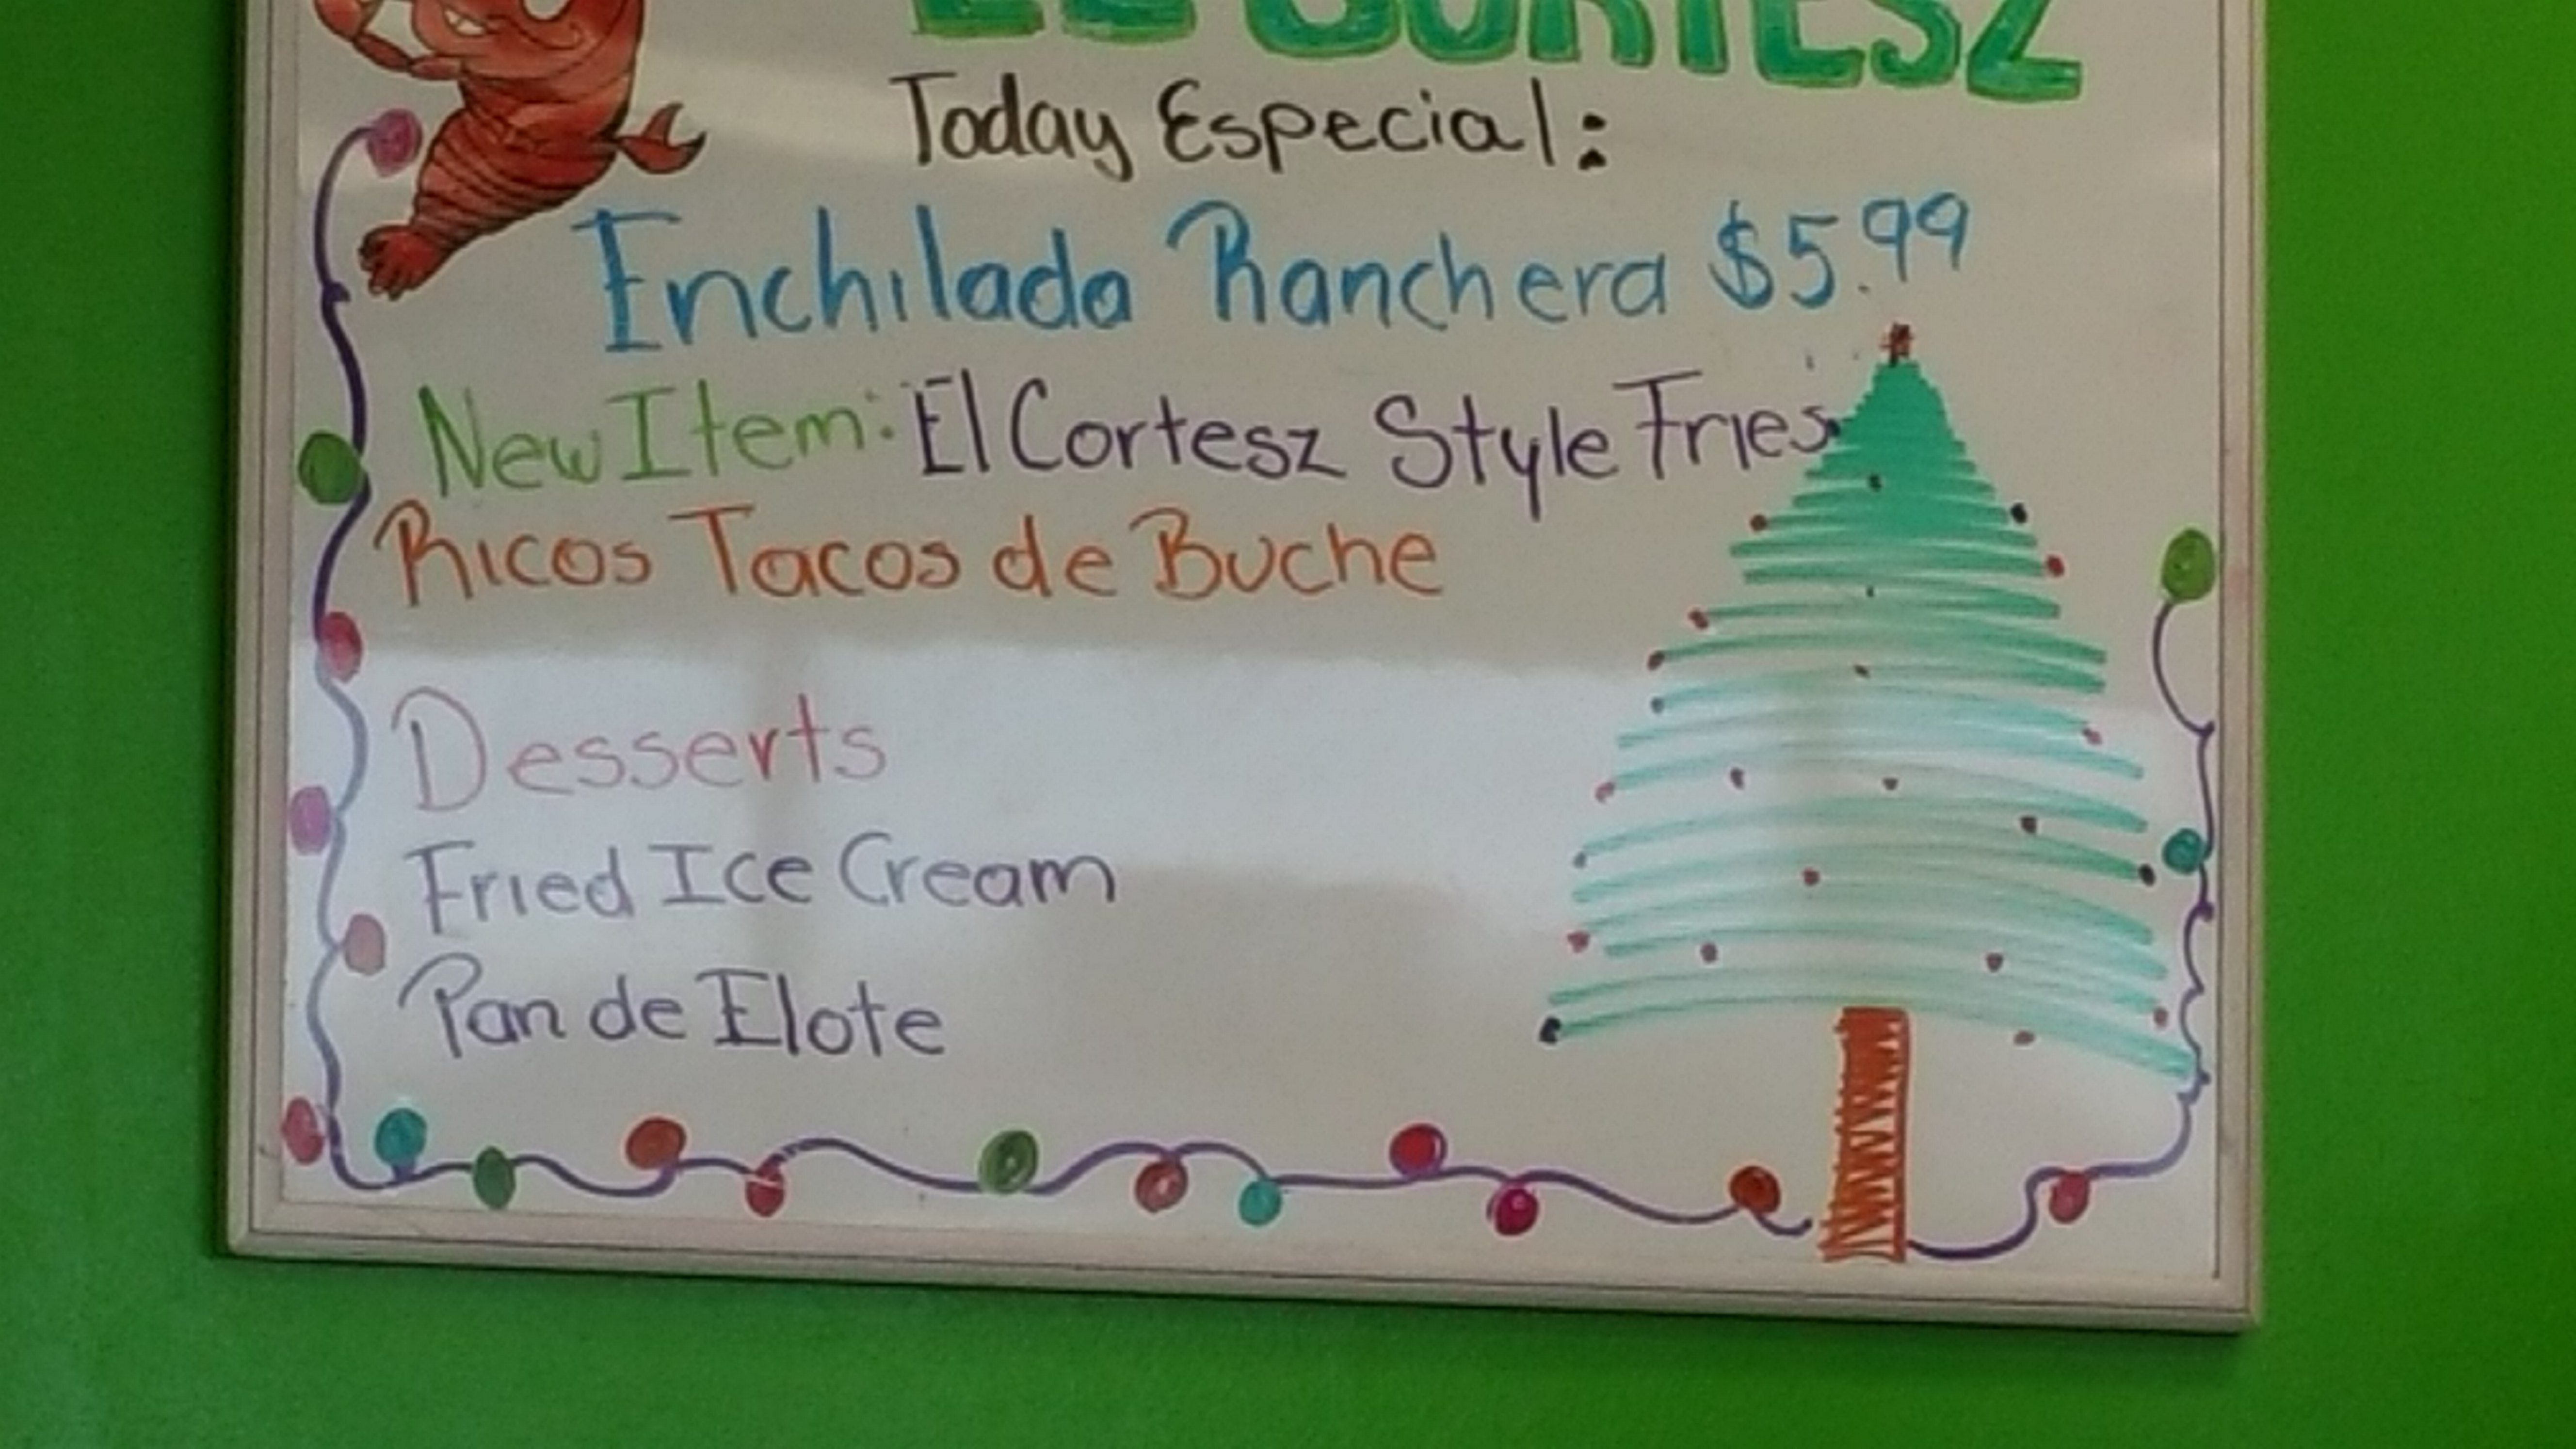 EL CORTESZ
Today Especial:
Enchilada Ranchera $5.99
New Item: El Cortesz Style Fries
Ricos Tacos de Buche
Desserts
Fried Ice Cream
Pan de Elote